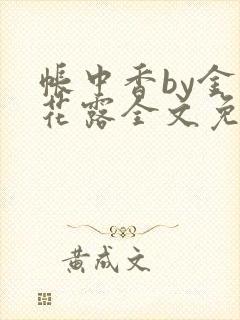 帐中香by金
花露全文免
黄成文